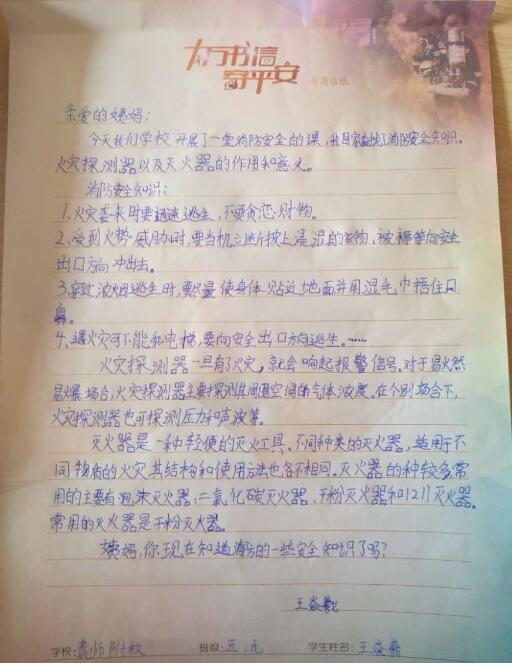 万封书信
寄平安
专用信纸
亲爱的姨妈:
今天我们学校开展了一堂消防安全的课,我回家查找了消防安全知识、
火灾探测器以及灭火器的作用和意义。
消防安全知识:
1.火灾袭来时要迅速逃生,不要贪恋财物。
2、受到火势威胁时,要当机立断披上浸湿的衣物、被褥等向安全
出口方向冲出去。
3.穿过浓烟逃生时,要尽量使身体贴近地面并用湿毛巾捂住口
鼻。
4、遇火灾可不能乘电梯,要向安全出口方向逃生。……
火灾探测器一旦有了火灾,就会响起报警信号。对于易燃
易爆场合,火灾探测器主要探测其周围空间的气体浓度。在个别场合下,
火灾探测器也可探测压力和声波等。
灭火器是一种轻便的灭火工具。不同种类的灭火器,适用于不
同物质的火灾其结构和使用方法也各不相同。灭火器的种较多常
用的主要有泡沫灭火器、二氧化碳灭火器、干粉灭火器和1211灭火器。
常用的灭火器是干粉灭火器。
姨妈,你现在知道消防的一些安全知识了吗?
王焱羲
学校:泰师附校 班级:五.九 学生姓名:王焱羲